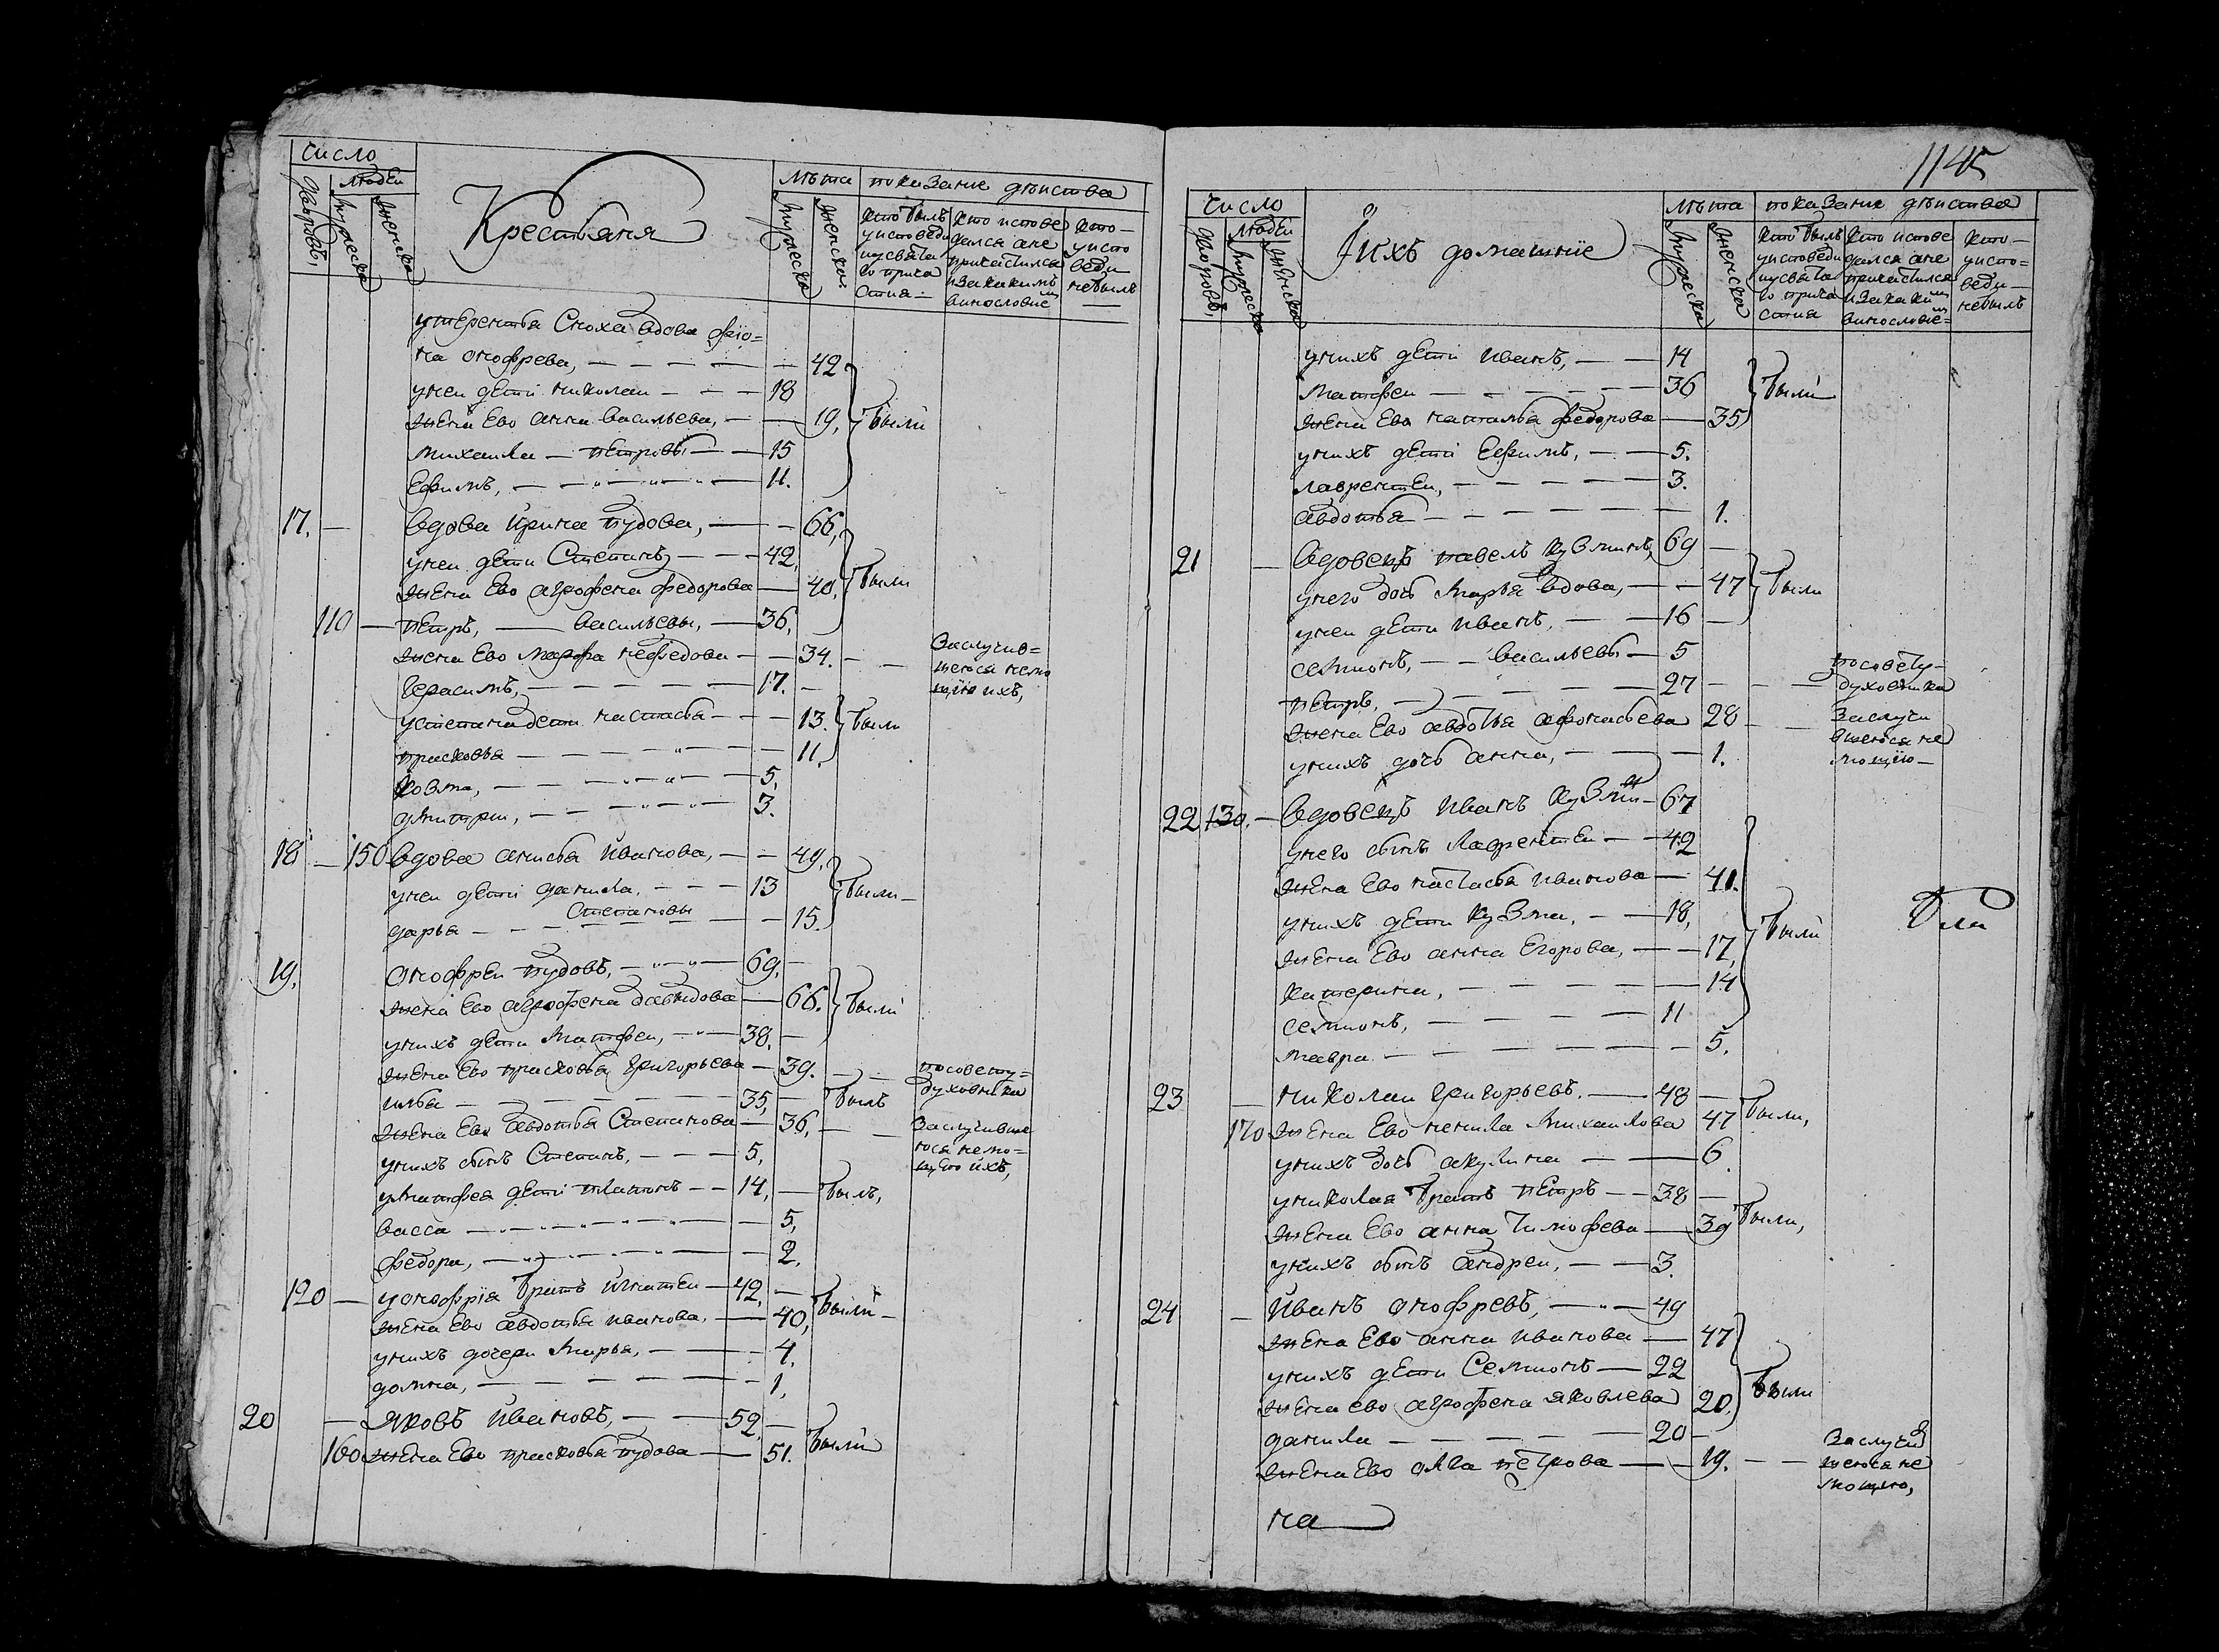 число
людеи
дворовъ,
мужеска
женска
Крестьяня
лѣта
показание дѣиства
мужеска
женска
кто былъ
у исповеди
и у свята
го прича
стия
кто испове
дался а не
причастился
и за каким
винословие
кто
у испо
веди
не былъ
у терентья Сноха вдова фио=
на онофрева, 42
у неи дети николаи 18
жена Ево анна васильева, 19, были
михаила петровы 15
Ефимъ, 11.
17. вдова ирина пудова, 66,
у неи дети Степанъ 42,
жена Ево агрофена федорова 40, были
110 петръ, васильевы, 36,
жена Ево марфа нефедова 34.
Заслучив=
шеюся немо
щию ихъ,
Герасимъ, 17.
у степана дети настасья 13. были
прасковья 11,
козма, 5,
дмитреи, 3.
18 150 вдова анисья иванова, 49,
у неи дети данила, 13 были
дарья Степановы 15.
19. онофреи пудовъ, 69,
жена Ево агрофена давыдова 66. были
у нихъ дети матфеи, 38,
жена Ево прасковья григорьева 39.
по совету
духовника
илья 35, былъ
жена Ево авдотья Степанова 36,
Заслучивше
юся немо=
щию ихъ,
у нихъ сынъ Степанъ, 5,
у матфея дети платонъ 14, былъ,
васса 5,
федора, 2.
120 у онофрия братъ игнатеи 42,
жена Ево авдотья иванова, 40, были
у нихъ дочери марья, 4,
домна, 1,
20 яковъ ивановъ, 52,
160 жена Ево прасковья пудова 51. были
1145
число
людеи
дворовъ,
мужеска
женска
И ихъ домашние
лѣта
показание дѣиства
мужеска
женска
кто былъ
у исповеди
и у свята
го прича
стия
кто испове
дался а не
причастился
и за каким
винословие=
кто
у испо=
веди
не былъ
у нихъ дети иванъ, 14
матфеи 36 были
жена Ева наталья федорова 35
у нихъ дети Ефимъ, 5.
лаврентеи, 3.
авдотья 1.
21 вдовецъ павелъ кузминъ, 69
у него дочь марья вдова, 47 были
у неи дети иванъ, 16
семионъ, васильевы 5
петръ, 27
по совету
духовника
жена Ево авдотья афонасьева 28
Заслучи
вшеюся не
мощию
у нихъ дочь анна, 1.
22 130. вдовецъ иванъ кузмин 67
у него сынъ лаврентеи 42
жена Ево настасья иванова 41.
у нихъ дети кузма, 18,
были
жена Ево анна Егорова, 17,
катерина, 14
семионъ, 11
мавра 5.
23 николаи григорьевъ. 48
170 жена Ево ненила михаилова 47 были,
у нихъ дочь акулина 6
у николая братъ петръ 38
жена Ево анна тимофева 39 были,
у нихъ сынъ андреи, 3.
24 иванъ онофревъ, 49
жена Ево анна иванова 47
у нихъ дети Семионъ 22
жена ево агрофена яковлева 20. были
данила 20
жена Ево олга петрова 19.
Заслучив
шеюся не
мощию,
на